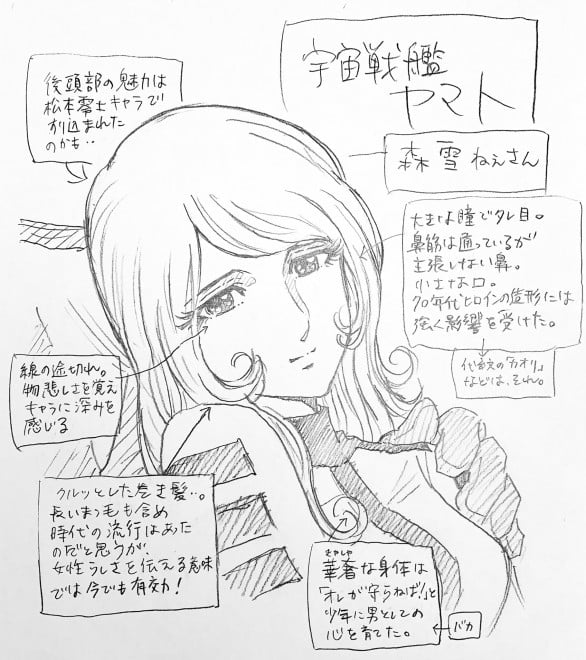 宇宙戦艦
ヤマト
後頭部の魅力は
松本零士キャラで
すり込まれた
のかも‥
森 雪 ねぇさん
大きな瞳でタレ目。
鼻筋は通っているが
主張しない鼻。
小さな口。
70年代ヒロインの造形には
強く影響を受けた。
「カオリ」
などは、それ。
線の途切れ。
物悲しさを覚え
キャラに深みを
感じる
クルッとした巻き髪‥。
長いまつ毛も含め
時代の流行はあった
のだと思うが、
女性らしさを伝える意味
では今でも有効！
きゃしゃ
華奢な身体は
「オレが守らねば！」と
少年に男としての
心を育てた。
バカ